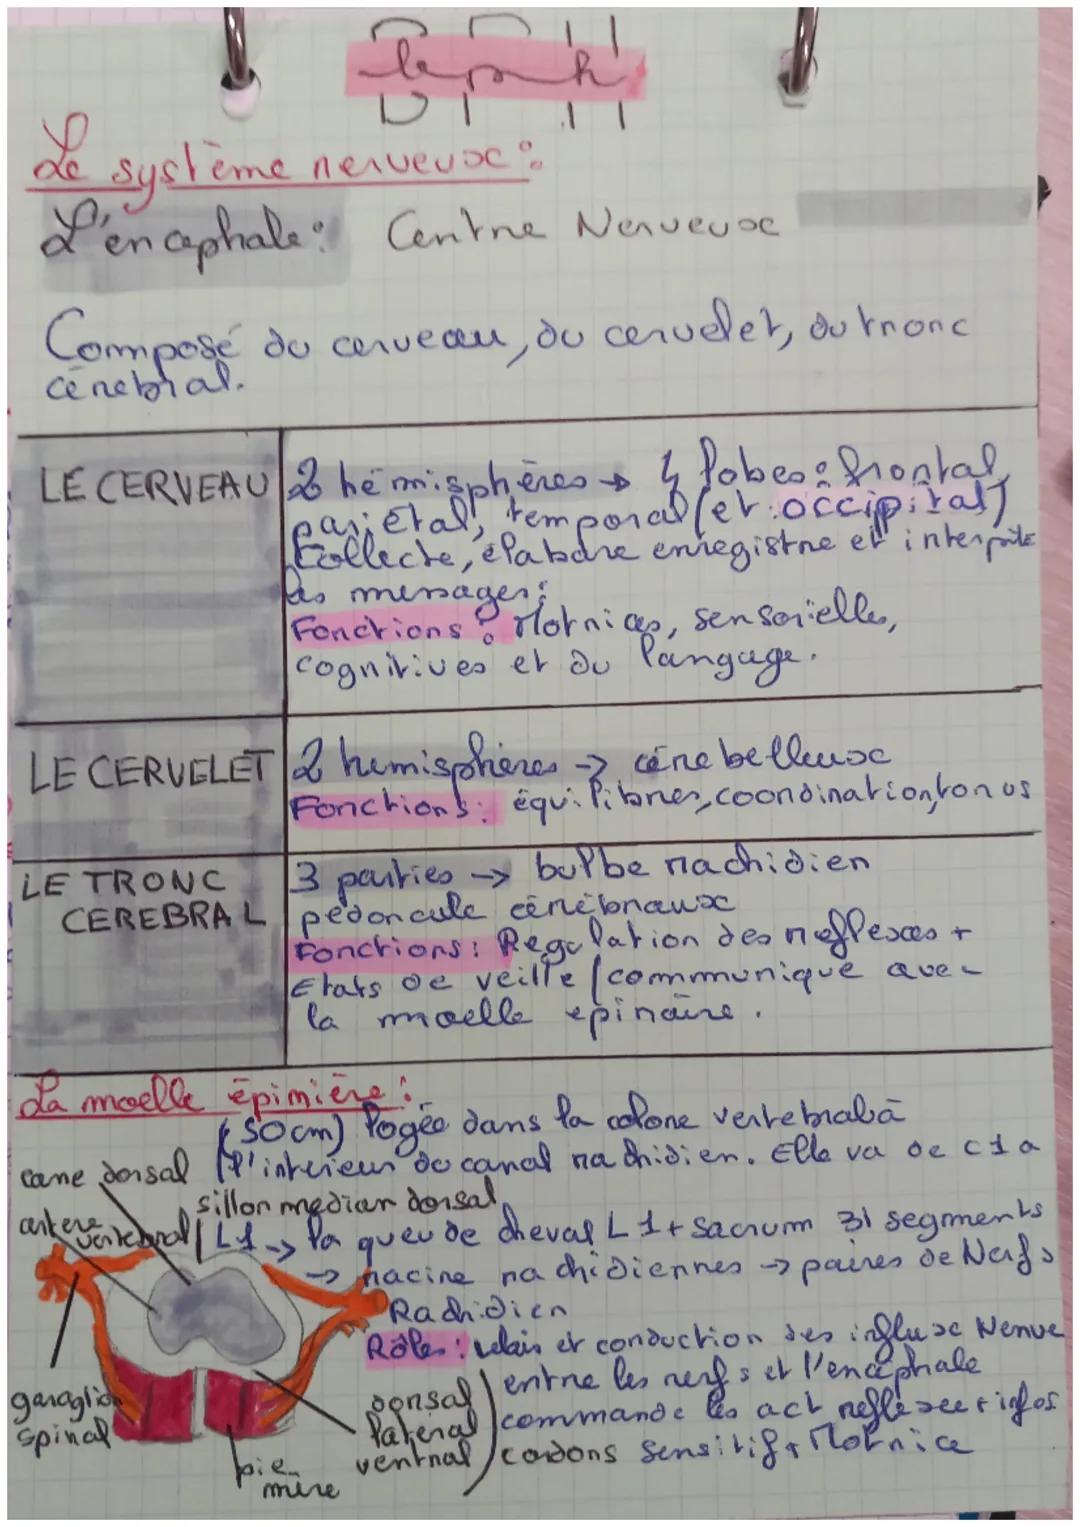 Le système nerveux :
L'éncephale : Centre Nerveux
Composé du cerveau, du cervelet, du tronc
cérébral.
LE CERVEAU
2 hémisphères → 4 lobes : frontal,
pariétal, temporal (et occipital)
Collecte, élabore enregistre et interprète
les messages :
Fonctions : Motrices, sensorielles,
cognitives et du langage.
LE CERVELET
2 hemisphères → cérebelleux
Fonctions : équilibres, coordination, tonus
LE TRONC
CEREBRAL
3 parties → bulbe rachidien
pédoncule cérébraux
Fonctions : Regulation des reflexes +
Etats de veille / communique avec
la moelle epinaire.
La moelle épinière :
(50cm) logée dans la colone vertebrale à
l'intérieur du canal rachidien. Elle va de C1 a
L1 → la queu de cheval L1 + sacrum 31 segments
→ racine rachidiennes → paires de Nerfs
Rachidien
Rôles : relais et conduction des influx Nerve
entre les nerfs et l'encéphale
commande les act reflexe + infos
cordons sensitif + Motrice
dorsal
lateral
ventral
corne dorsal
sillon median dorsal
artere vertebral
ganaglion
spinal
pie
mère